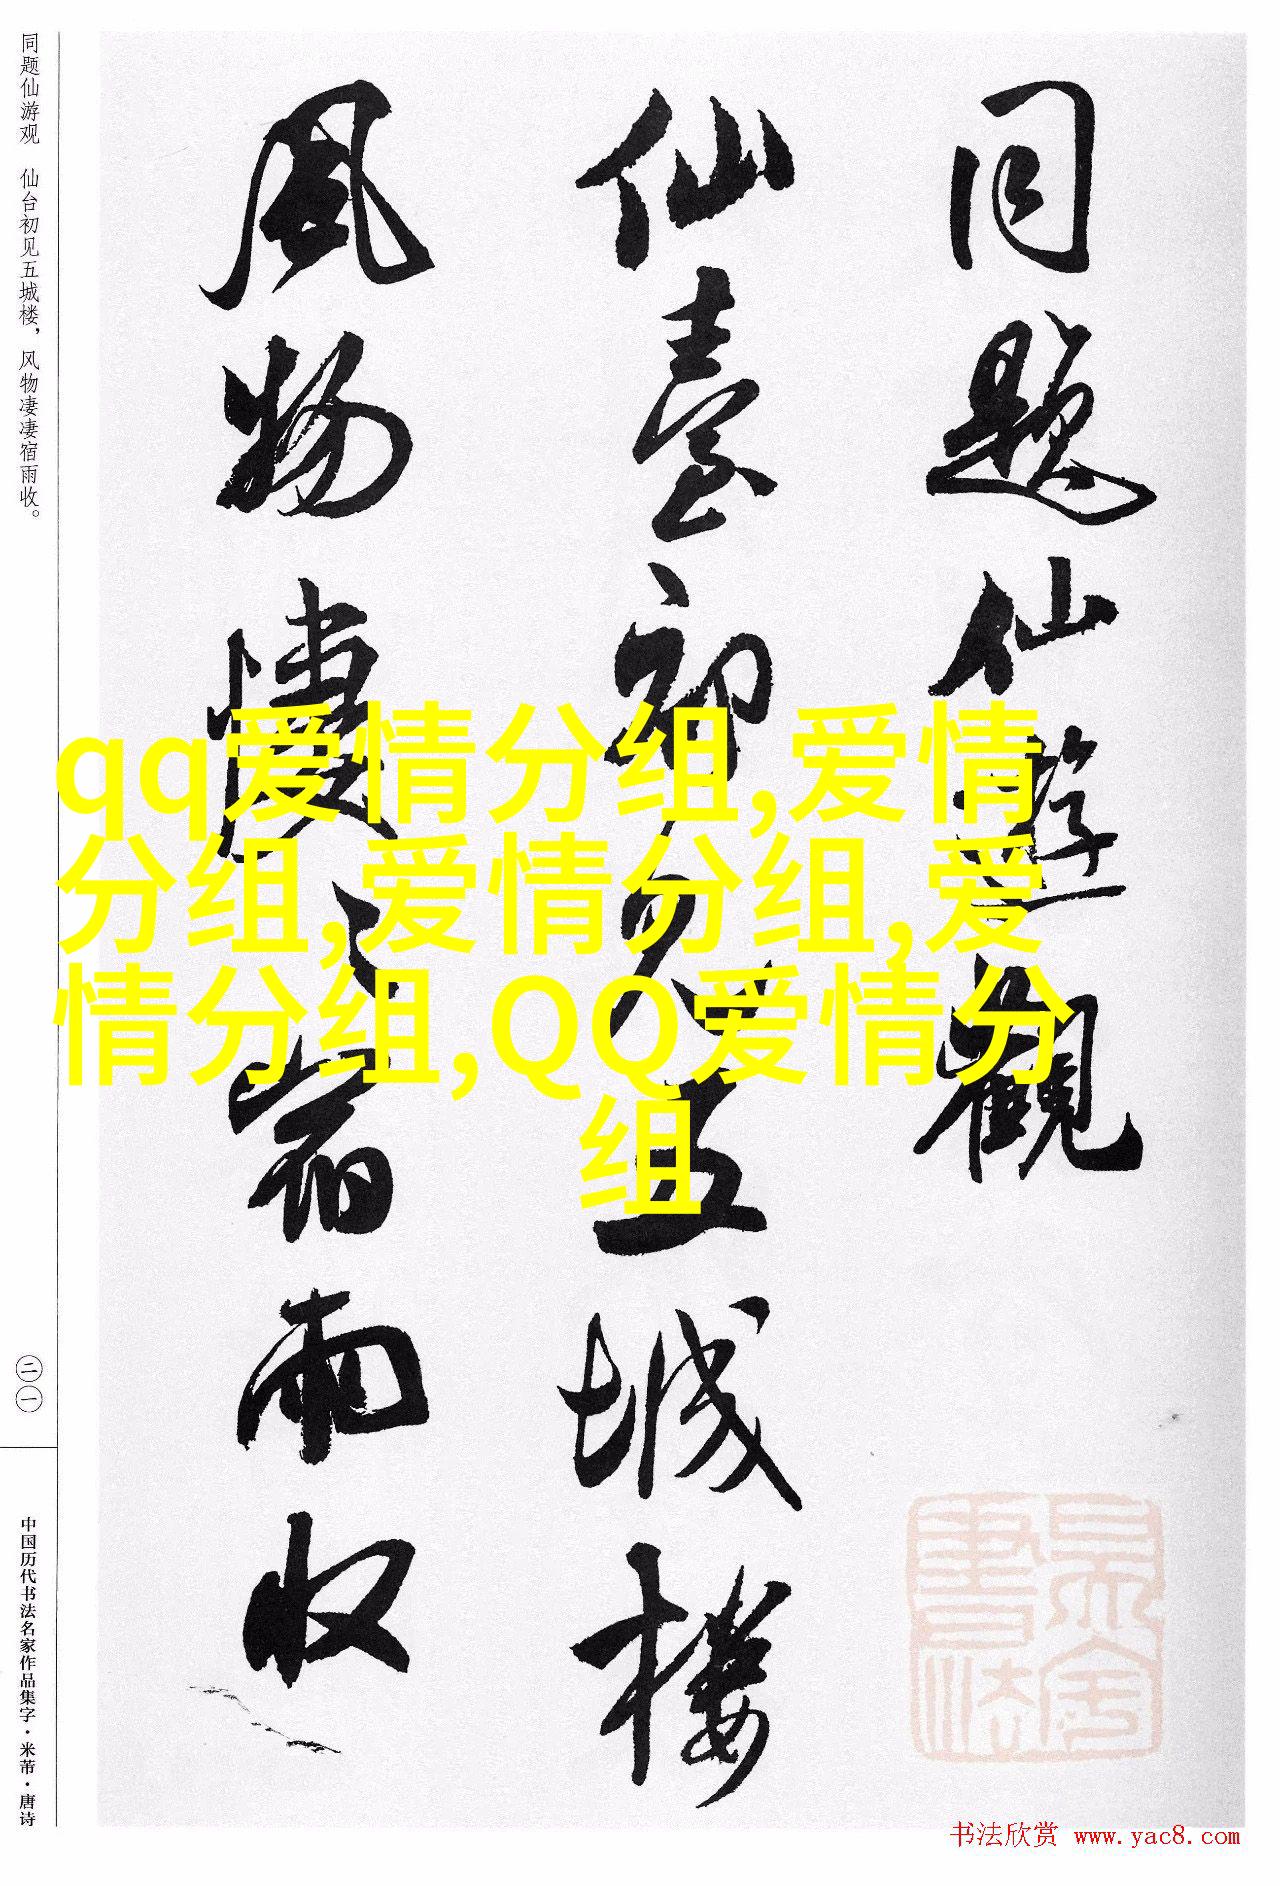 同题仙游观 仙台初见五城楼，风物凄凄宿雨收。
二一
中国历代书法名家作品集字·米芾·唐诗
同題仙遊觀
仙臺初見五城樓
風物凄〻宿雨收
qq爱情分组,爱情
分组,爱情分组,爱
情分组,QQ爱情分
组
书法欣赏 www.yac8.com